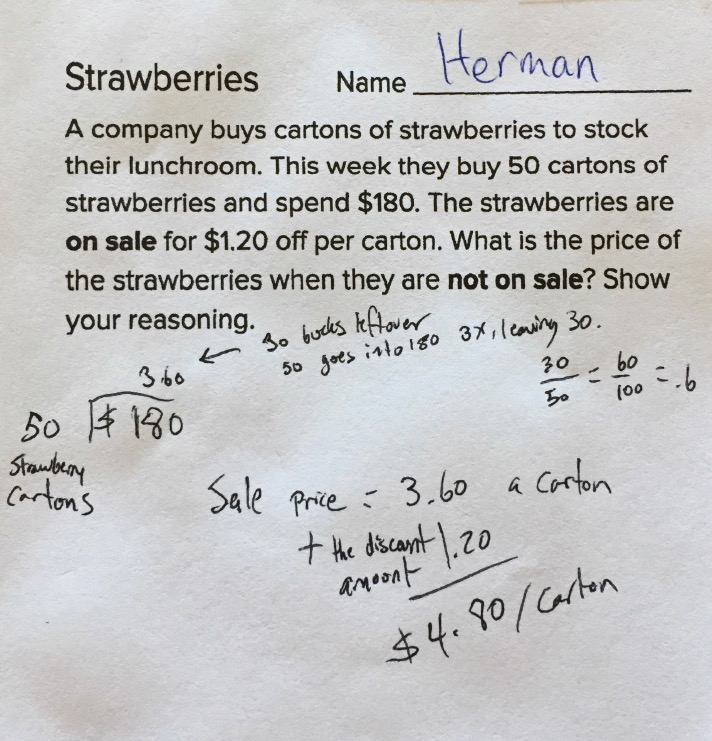 Strawberries Name Herman
A company buys cartons of strawberries to stock
their lunchroom. This week they buy 50 cartons of
strawberries and spend $180. The strawberries are
on sale for $1.20 off per carton. What is the price of
the strawberries when they are not on sale? Show
your reasoning.
← 30 bucks leftover
50 goes into 180 3x, leaving 30.
30/50 = 60/100 = .6
3.60
50 $ 180
Strawberry
Cartons
Sale price = 3.60 a carton
+ the discount 1.20
amount
$4.80/carton